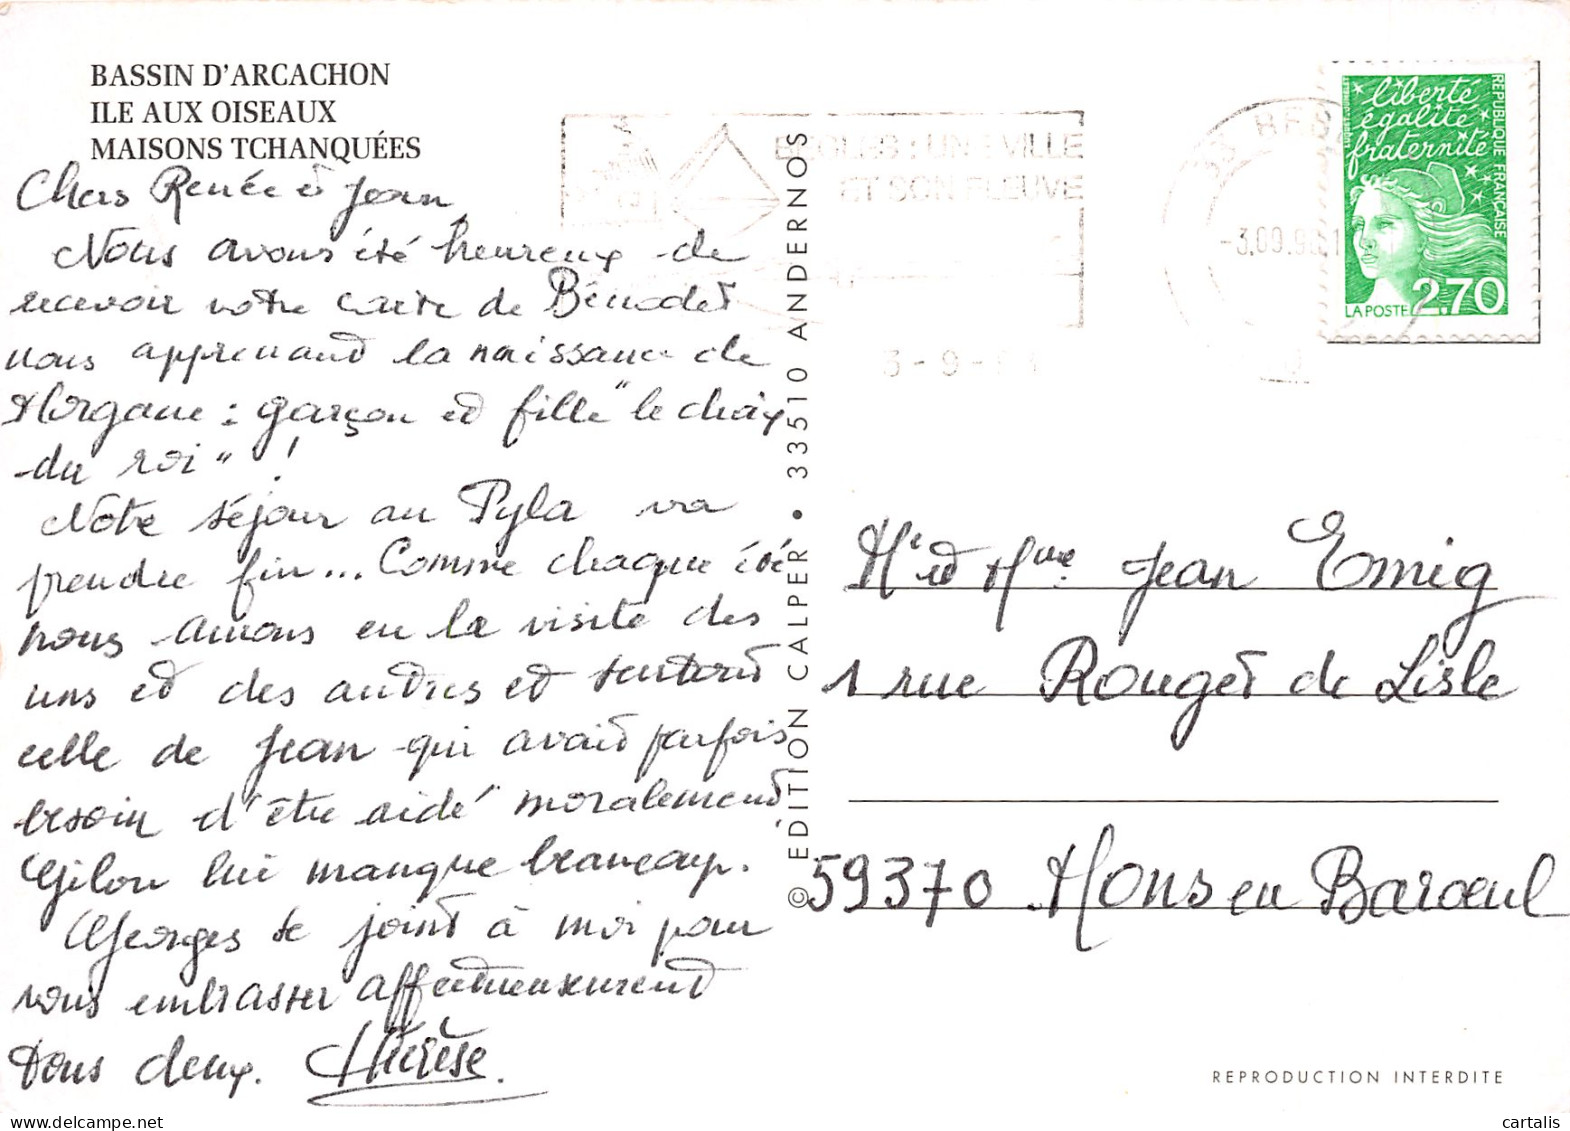 BASSIN D'ARCACHON
ILE AUX OISEAUX
MAISONS TCHANQUÉES
Chers Renée et Jean
Nous avons été heureux de
recevoir votre carte de Bénodet
nous apprenant la naissance de
Morgane : garçon et fille "le choix
du roi" !
Notre séjour au Pyla va
prendre fin... Comme chaque été
nous avons eu la visite des
uns et des autres et surtout
celle de Jean qui avait parfois
besoin d'être aidé moralement
Gilou lui manque beaucoup.
Georges se joint à moi pour
vous embrasser affectueusement
Tous deux. Thérèse.
© EDITION CALPER • 33510 ANDERNOS
BEGLES : UNE VILLE
ET SON FLEUVE
33 BEG
-3.09.98
3-9-9
liberté
égalité
fraternité
REPUBLIQUE FRANÇAISE
LA POSTE 2.70
Mr et Mme Jean Emig
1 rue Rouget de Lisle
59370 Mons en Baroeul
REPRODUCTION INTERDITE
cartalis
delcampe.net